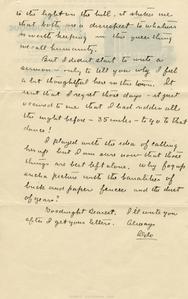 to the light in the hull, it strikes me
that both are a disrespect to whatever
is worth keeping in this queer thing
we call humanity.
But I didn't start to write a
sermon — only to tell you why I felt
a bit thoughtful here in this town. It
isn't that I regret those days — it just
occurred to me that I had ridden all
the night before — 35 miles — to go to that
dance!
I played with the idea of calling
her up but I am sure now that those
things are best left alone. Why fog up
such a picture with the banalities of
buck and paper fences and the dust
of years?
Goodnight Dearest. I'll write you
after I get your letters. Always